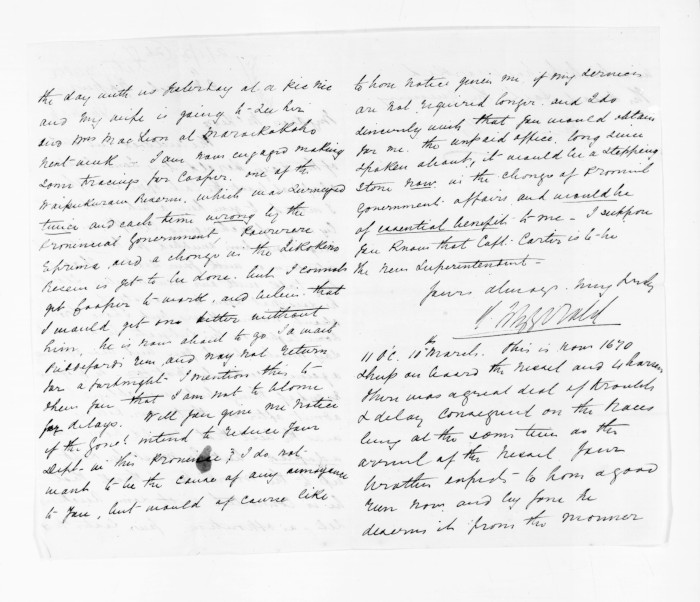 the day with us yesterday at a Pic Nic
and my wife is going to see her
and Mrs MacLean at Maraekakaho
next week I am now engaged making
some tracings for Cooper, one of the
Waipukurau Reserve, which was surveyed
twice and each time wrong by the
Provincial Government,
and a change in the Tikokino
Reserve is yet to be done. but I cannot
get Cooper to work, and believe that
I would get on better without
him, he is now about to go
run, and may not return
for a fortnight. I mention this to
shew you that I am not to blame
for delays. Will you give me notice
if the Govt intend to reduce your
Dept in this Province? I do not
want to be the cause of any annoyance
to you, but would of course like
to have notice given me if my services
are not required longer. and I do
sincerely wish that you would obtain
for me the unpaid office, long since
spoken about, it would be a stepping
stone now in the change of Provincial
Government affairs and would be
of essential benefit to me - I suppose
you know that Capt. Carter is to be
the new Superintendent -
Yours always very truly
FitzGerald
11 O'C. 10th March. There is now 1670
sheep on board the vessel and 4 horses
There was a great deal of trouble
& delay consequent on the Races
being at the same time as the
arrival of the vessel your
brother expects to have a good
run now, and by Jove he
deserves it from the manner